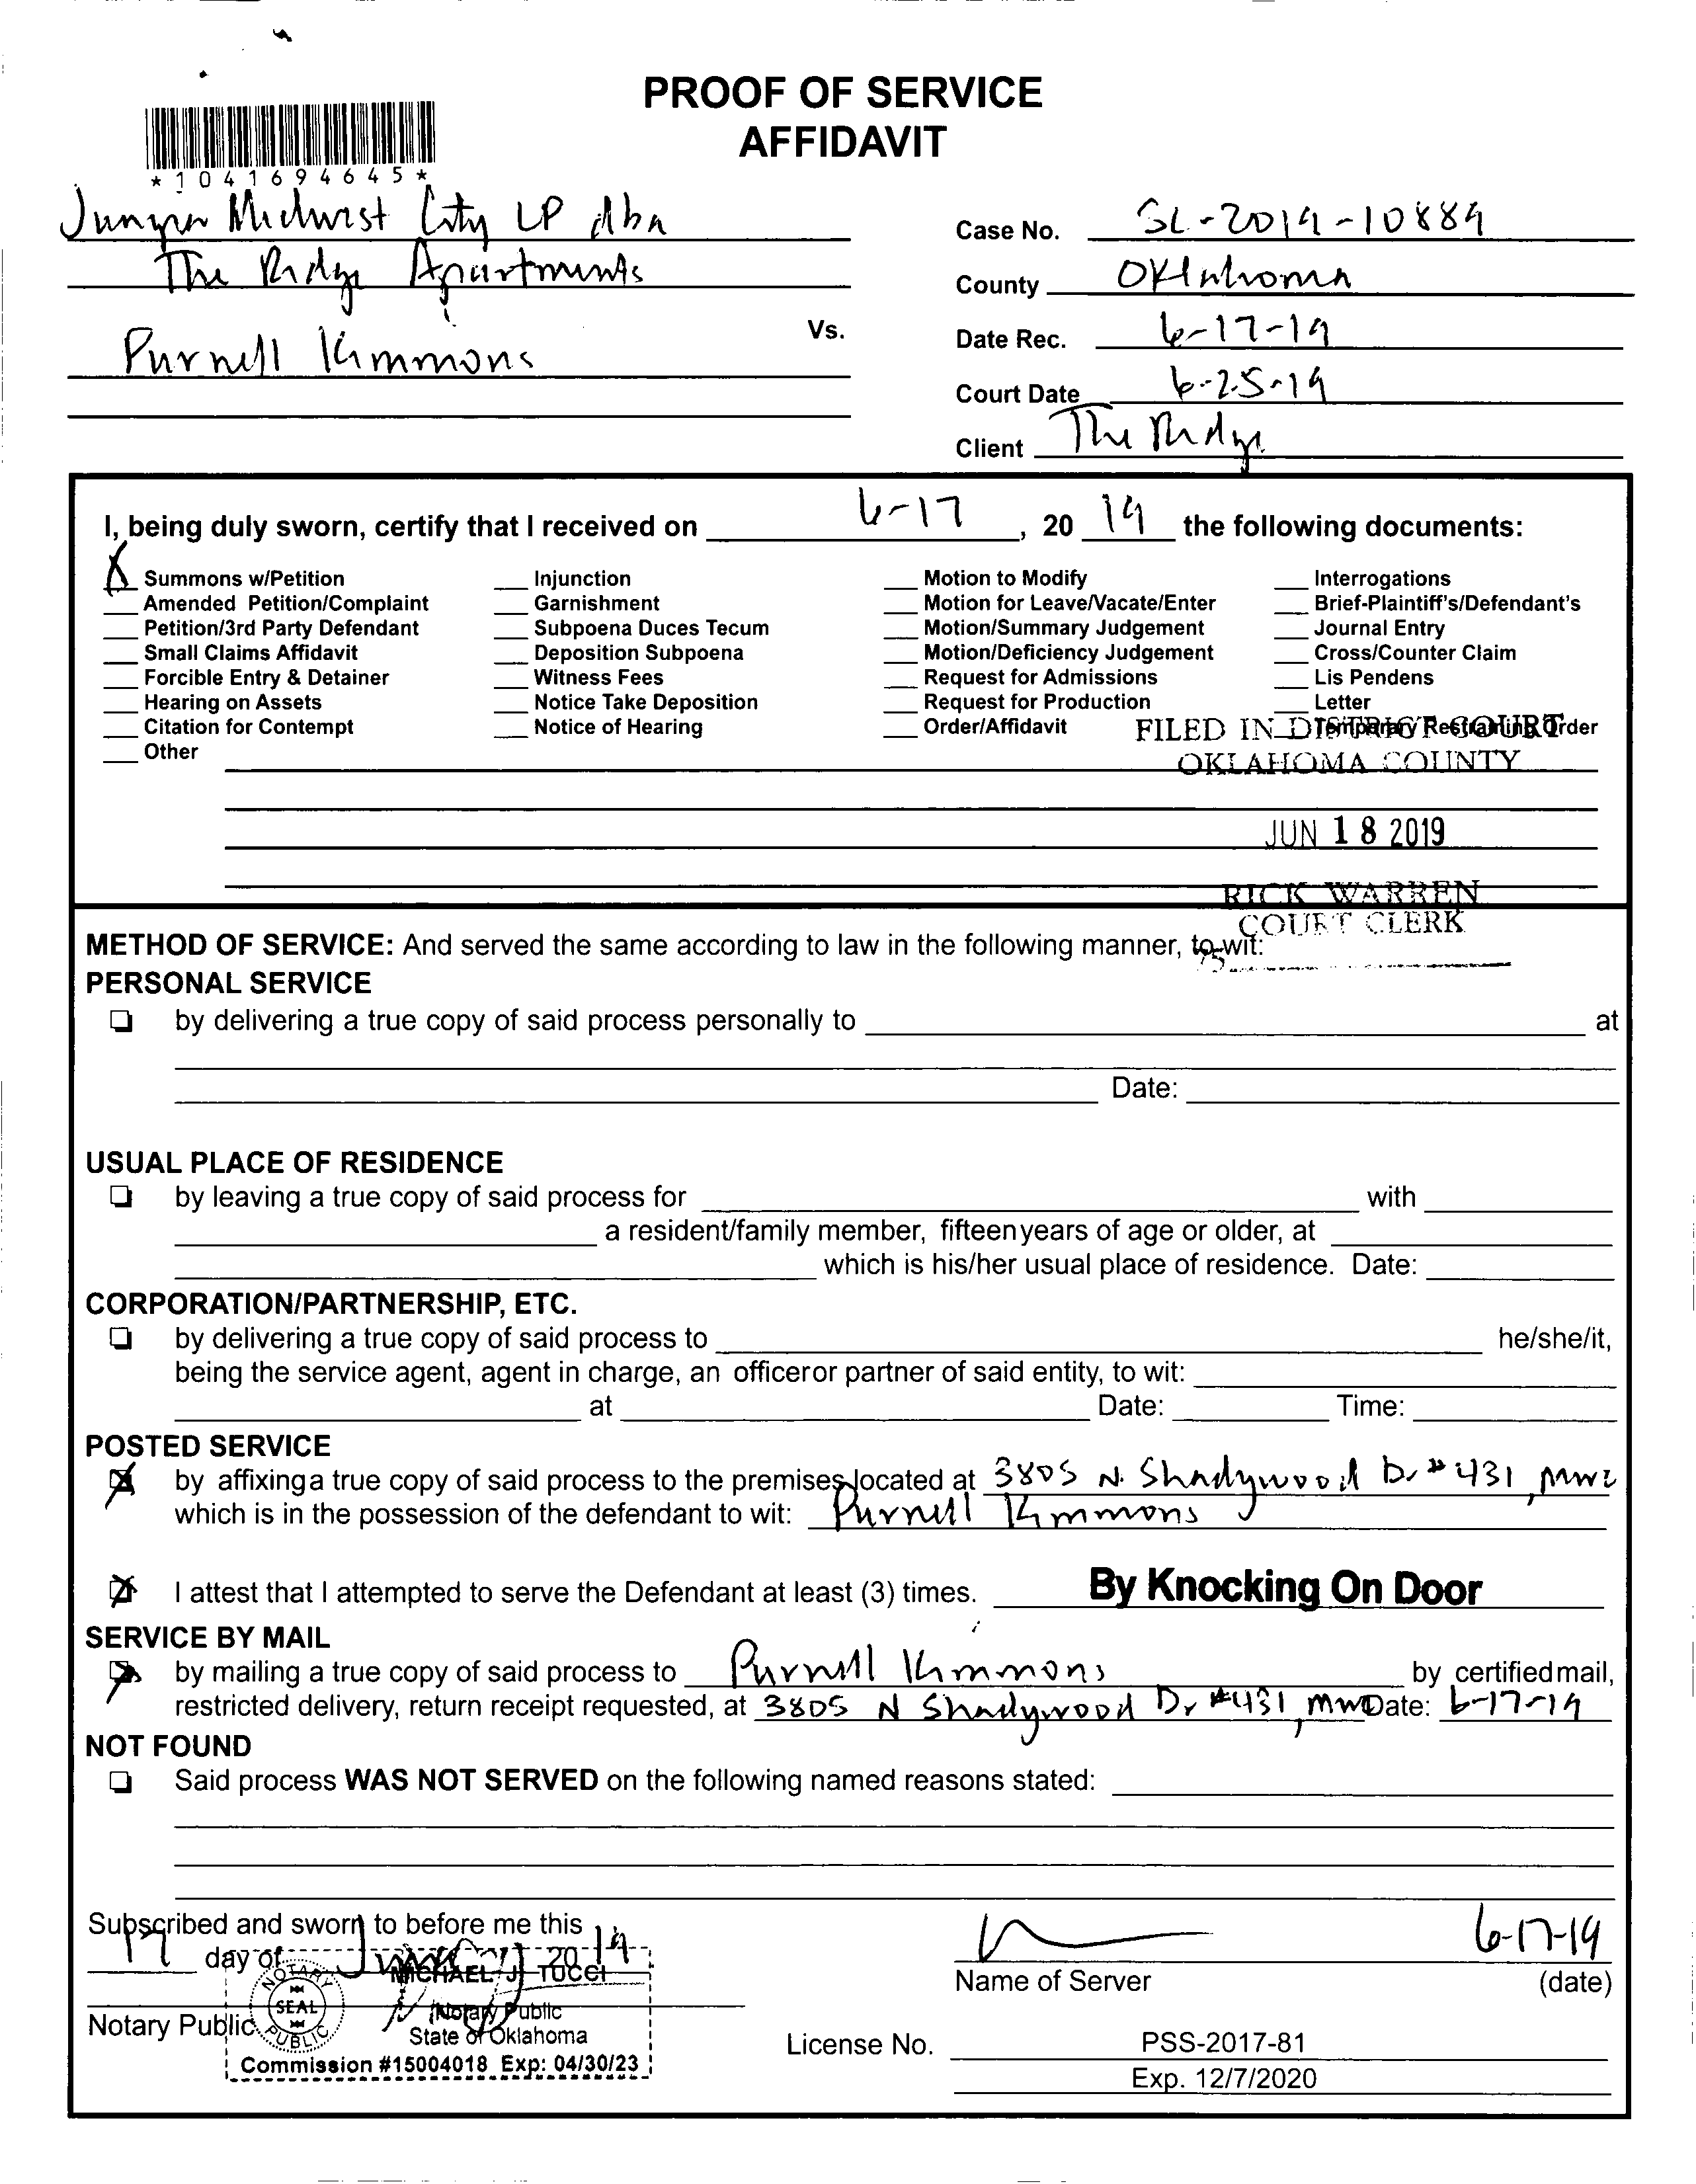 PROOF OF SERVICE
AFFIDAVIT
*1041694645*
Midwest City LP dba
The Ridge Apartments
Vs.
Purnell Kimmons
Case No. SL-2019-10889
County Oklahoma
Date Rec. 6-17-19
Court Date 6-25-19
Client The Ridge
I, being duly sworn, certify that I received on 6-17, 20 19 the following documents:
X Summons w/Petition
Amended Petition/Complaint
Petition/3rd Party Defendant
Small Claims Affidavit
Forcible Entry & Detainer
Hearing on Assets
Citation for Contempt
Other
Injunction
Garnishment
Subpoena Duces Tecum
Deposition Subpoena
Witness Fees
Notice Take Deposition
Notice of Hearing
Motion to Modify
Motion for Leave/Vacate/Enter
Motion/Summary Judgement
Motion/Deficiency Judgement
Request for Admissions
Request for Production
Order/Affidavit
Interrogations
Brief-Plaintiff's/Defendant's
Journal Entry
Cross/Counter Claim
Lis Pendens
Letter
Temporary Restraining Order
FILED IN DISTRICT COURT
OKLAHOMA COUNTY
JUN 18 2019
RICK WARREN
COURT CLERK
METHOD OF SERVICE: And served the same according to law in the following manner, to-wit:
PERSONAL SERVICE
by delivering a true copy of said process personally to at
Date:
USUAL PLACE OF RESIDENCE
by leaving a true copy of said process for with
a resident/family member, fifteen years of age or older, at
which is his/her usual place of residence. Date:
CORPORATION/PARTNERSHIP, ETC.
by delivering a true copy of said process to he/she/it,
being the service agent, agent in charge, an officeror partner of said entity, to wit:
at Date: Time:
POSTED SERVICE
by affixing a true copy of said process to the premises located at 3805 N. Shadywood Dr #431, MWC
which is in the possession of the defendant to wit: Purnell Kimmons
I attest that I attempted to serve the Defendant at least (3) times. By Knocking On Door
SERVICE BY MAIL
by mailing a true copy of said process to Purnell Kimmons by certified mail,
restricted delivery, return receipt requested, at 3805 N Shadywood Dr #431, MWC Date: 6-17-19
NOT FOUND
Said process WAS NOT SERVED on the following named reasons stated:
Subscribed and sworn to before me this
17 day of June 20 19
Notary Public
NOTARY PUBLIC
SEAL
MICHAEL J TUCCI
Notary Public
State of Oklahoma
Commission #15004018 Exp: 04/30/23
6-17-19
Name of Server (date)
License No. PSS-2017-81
Exp. 12/7/2020